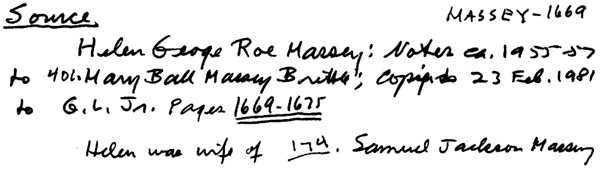 Source MASSEY-1669
Helen George Roe Massey: Notes ca. 1955-57
to 401. Mary Ball Massey Brittle; copied to 23 Feb. 1981
to G. L. Jr. Pages 1669-1675
Helen was wife of 174. Samuel Jackson Massey